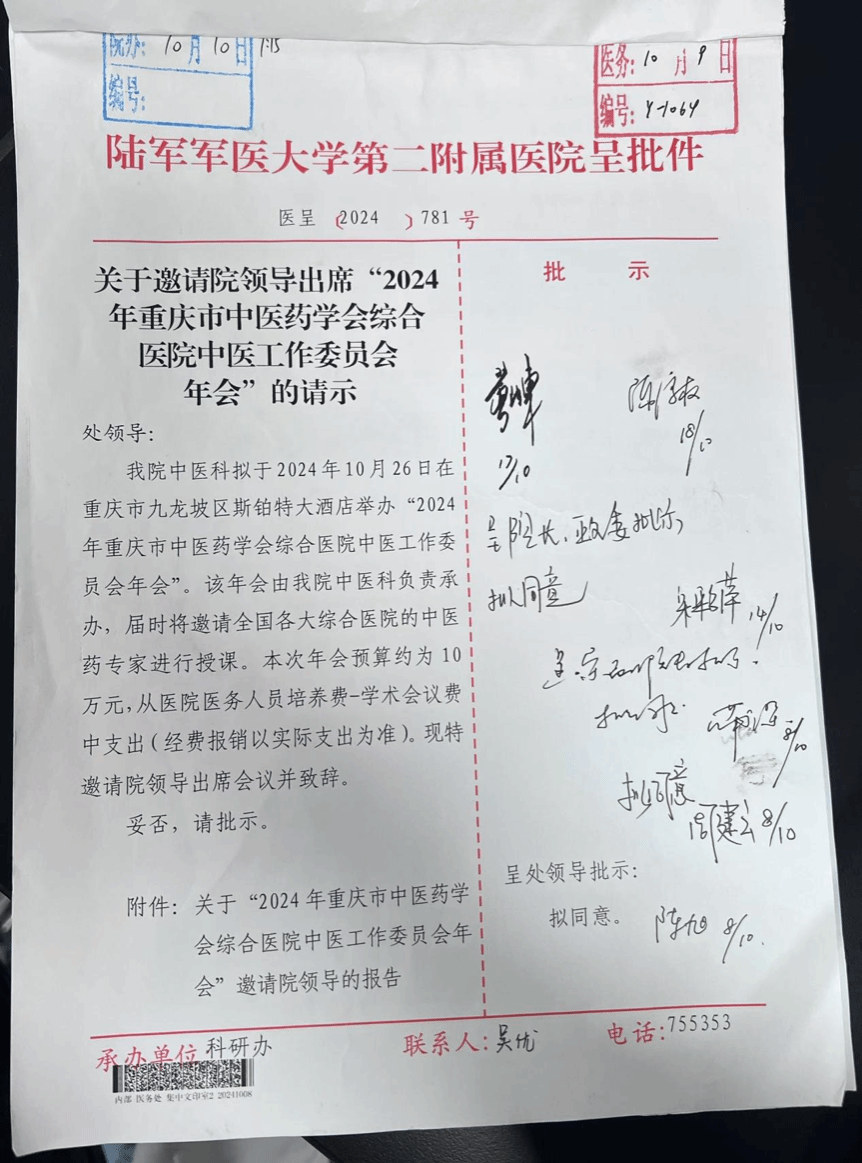 院办: 10月10日 1:15
编号:
医务: 10月9日
编号: Y-1064
陆军军医大学第二附属医院呈批件
医呈〔2024〕781号
关于邀请院领导出席“2024
年重庆市中医药学会综合
医院中医工作委员会
年会”的请示
处领导:
我院中医科拟于2024年10月26日在
重庆市九龙坡区斯铂特大酒店举办“2024
年重庆市中医药学会综合医院中医工作委
员会年会”。该年会由我院中医科负责承
办，届时将邀请全国各大综合医院的中医
药专家进行授课。本次年会预算约为10
万元,从医院医务人员培养费-学术会议费
中支出(经费报销以实际支出为准)。现特
邀请院领导出席会议并致辞。
妥否，请批示。
附件: 关于“2024年重庆市中医药学
会综合医院中医工作委员会年
会”邀请院领导的报告
批示
17/10
18/10
呈院长、政委批示,
拟同意
14/10
8/10
拟同意
周建云 8/10
呈处领导批示:
拟同意。 陈旭 8/10.
承办单位 科研办 联系人: 吴优 电话: 755353
内部 医务处 集中文印室2 20241008